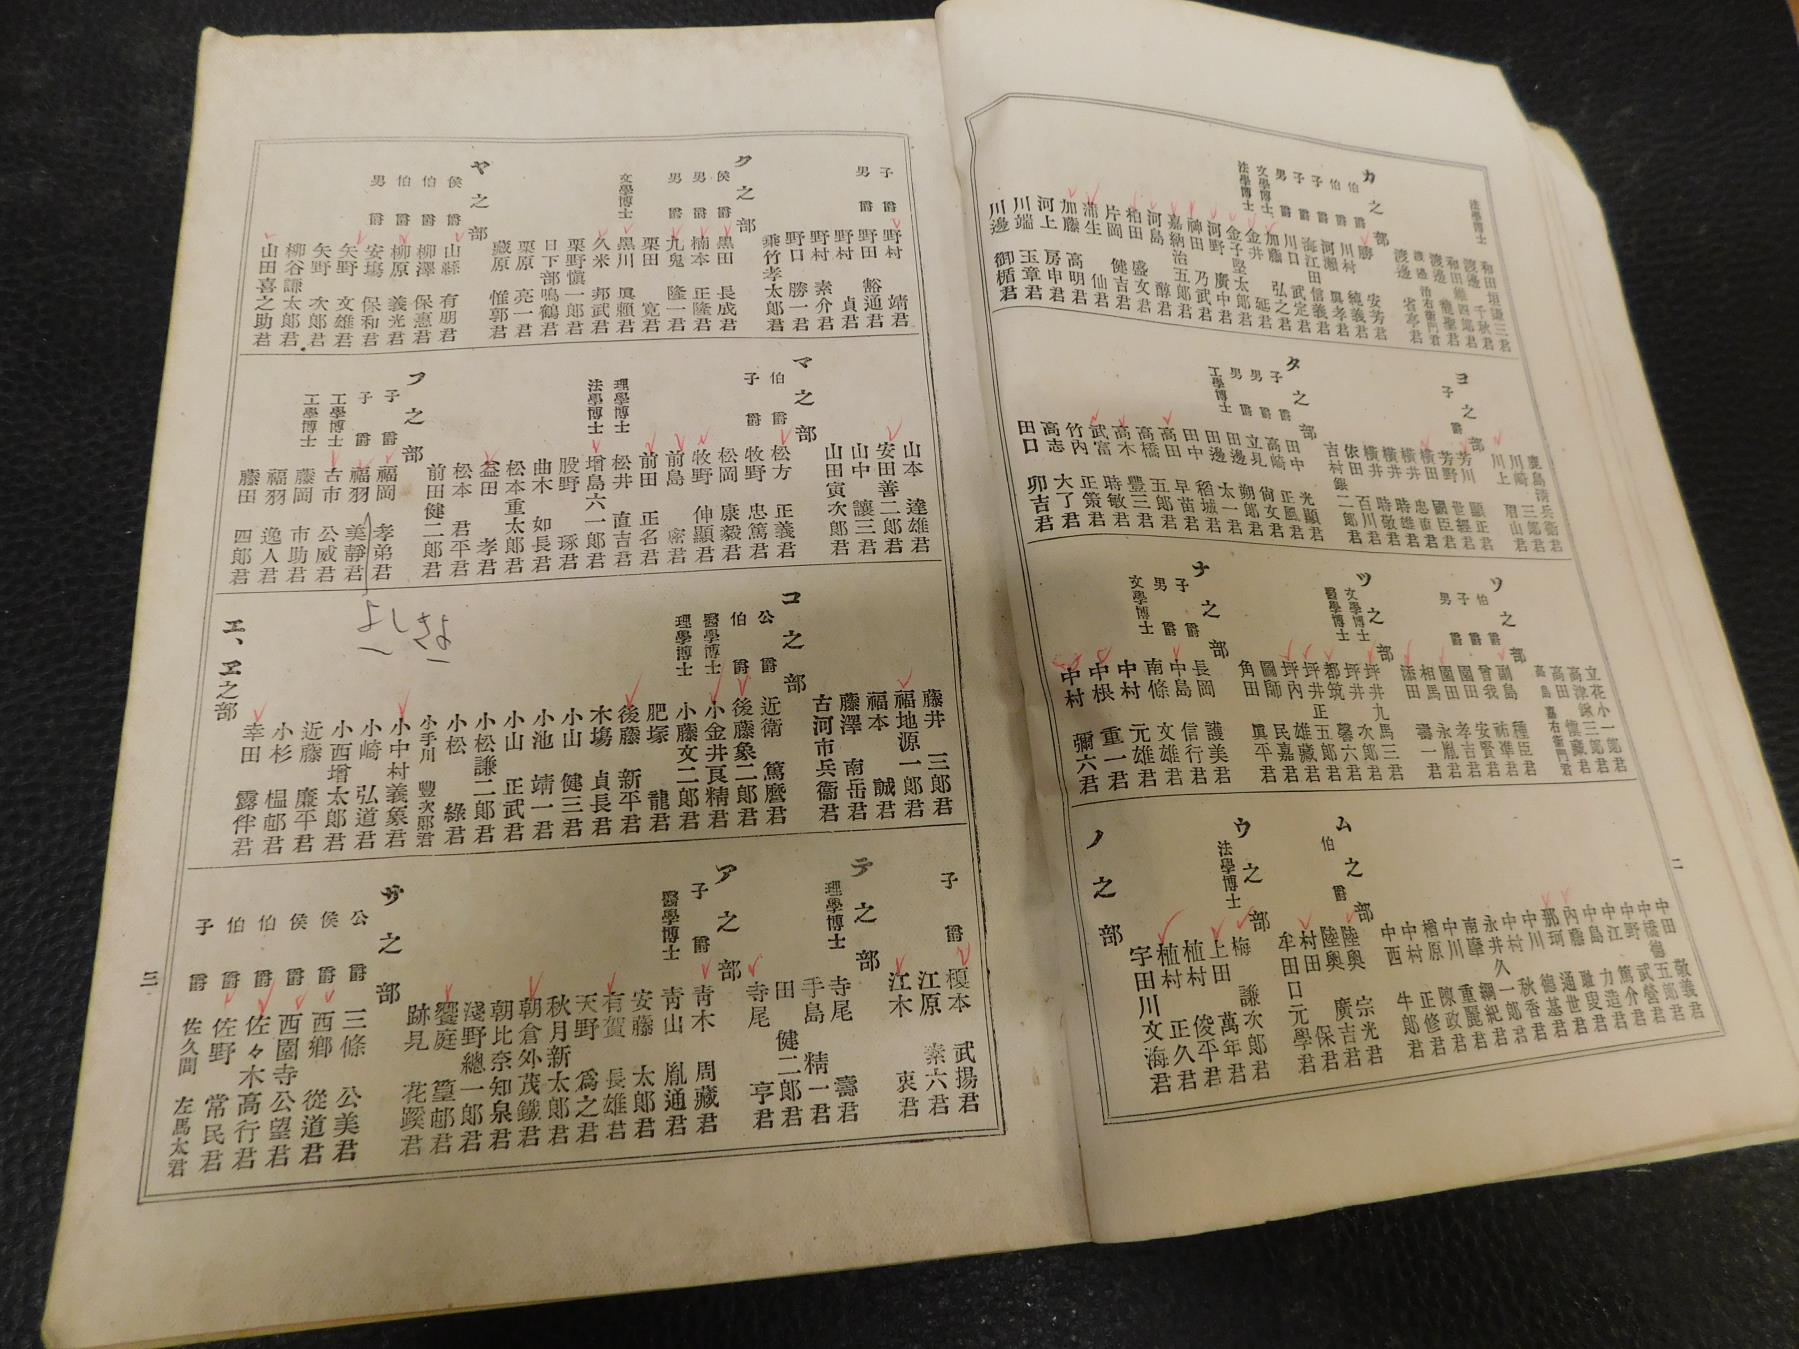 法學博士 和田垣謙三君
渡邊 千秋君
和田維四郎君
渡邊 龍聖君
渡邊 洪右衞門君
渡邊 省亭君
カ之部
伯爵 勝 安芳君
伯爵 川村 純義君
子爵 河瀨 眞孝君
子爵 海江田信義君
男爵 川口 武定君
文學博士 加藤 弘之君
法學博士 金井 延君
金子堅太郎君
河野 廣中君
神田 乃武君
嘉納治五郎君
河島 醇君
柏田 盛文君
片岡 健吉君
蒲生 仙君
加藤 高明君
河上 房申君
川端 玉章君
川邊 御楯君
鹿島淸兵衞君
川崎 三郎君
川上 眉山君
ヨ之部
子爵 芳川 顯正君
芳野 世經君
橫田 國臣君
橫井 忠直君
橫井 時雄君
橫井 時敬君
依田 百川君
吉村銀二郎君
タ之部
子爵 田中 光顯君
男爵 高崎 正風君
男爵 立見 尙文君
工學博士 田邊 朔郎君
田邊 太一君
田中 稻城君
高田 早苗君
高橋 五郎君
高木 豐三君
武富 時敏君
竹內 正策君
高志 大了君
田口 卯吉君
立花小一郞君
高津鍬三郎君
高田 愼藏君
高島 嘉右衞門君
ソ之部
伯爵 副島 種臣君
子爵 曾我 祐準君
男爵 園田 安賢君
園田 孝吉君
相馬 永胤君
添田 壽一君
ツ之部
文學博士 坪井九馬三君
醫學博士 坪井 次郎君
都筑 馨六君
坪井正五郎君
坪內 雄藏君
圖師 民嘉君
角田 眞平君
ナ之部
子爵 長岡 護美君
男爵 中島 信行君
文學博士 南條 文雄君
中村 元雄君
中根 重一君
中村 彌六君
中田 敬義君
中橋德五郎君
中野 武營君
中江 篤介君
中島 力造君
內藤 耻叟君
那珂 通世君
中川 德基君
中村 秋香君
永井久一郎君
南摩 綱紀君
中川 重麗君
楢原 陳政君
中村 正修君
中西 牛郎君
ム之部
伯爵 陸奧 宗光君
陸奧 廣吉君
村田 保君
牟田口元學君
ウ之部
法學博士 梅 謙次郎君
上田 萬年君
植村 俊平君
植村 正久君
宇田川文海君
ノ之部
二
子爵 野村 靖君
男爵 野田 豁通君
野村 貞君
野村 素介君
野口 勝一君
乘竹孝太郎君
ク之部
侯爵 黑田 長成君
男爵 楠本 正隆君
男爵 九鬼 隆一君
栗田 寬君
文學博士 黑川 眞賴君
久米 邦武君
栗野愼一郎君
日下部鳴鶴君
栗原 亮一君
藏原 惟郭君
ヤ之部
侯爵 山縣 有朋君
伯爵 柳澤 保惠君
伯爵 柳原 義光君
男爵 安塲 保和君
矢野 文雄君
矢野 次郎君
柳谷謙太郎君
山田喜之助君
山本 達雄君
安田善二郎君
山中 讓三君
山田寅次郎君
マ之部
伯爵 松方 正義君
子爵 牧野 忠篤君
松岡 康毅君
牧野 伸顯君
前島 密君
前田 正名君
理學博士 松井 直吉君
法學博士 增島六一郎君
股野 琢君
曲木 如長君
松本重太郎君
益田 孝君
松本 君平君
前田健二郎君
フ之部
子爵 福岡 孝弟君
子爵 福羽 美靜君
工學博士 古市 公威君
工學博士 藤岡 市助君
福羽 逸人君
藤田 四郎君
よし
藤井 三郎君
福地源一郎君
福本 誠君
藤澤 南岳君
古河市兵衞君
コ之部
公爵 近衞 篤麿君
伯爵 後藤象二郎君
醫學博士 小金井良精君
理學博士 小藤文二郎君
肥塚 龍君
後藤 新平君
木塲 貞長君
小山 健三君
小池 靖一君
小山 正武君
小松謙二郎君
小松 綠君
小手川 豐次郎君
小中村義象君
小崎 弘道君
小西增太郎君
近藤 廉平君
小杉 榲邨君
幸田 露伴君
エ、ヱ之部
子爵 榎本 武揚君
江原 素六君
江木 衷君
テ之部
理學博士 寺尾 壽君
手島 精一君
田 健二郎君
寺尾 亨君
ア之部
子爵 靑木 周藏君
醫學博士 靑山 胤通君
安藤 太郎君
有賀 長雄君
天野 爲之君
秋月新太郎君
朝倉外茂鐵君
朝比奈知泉君
淺野總一郎君
饗庭 篁邨君
跡見 花蹊君
サ之部
公爵 三條 公美君
侯爵 西鄕 從道君
侯爵 西園寺公望君
伯爵 佐々木高行君
伯爵 佐野 常民君
子爵 佐久間 左馬太君
三